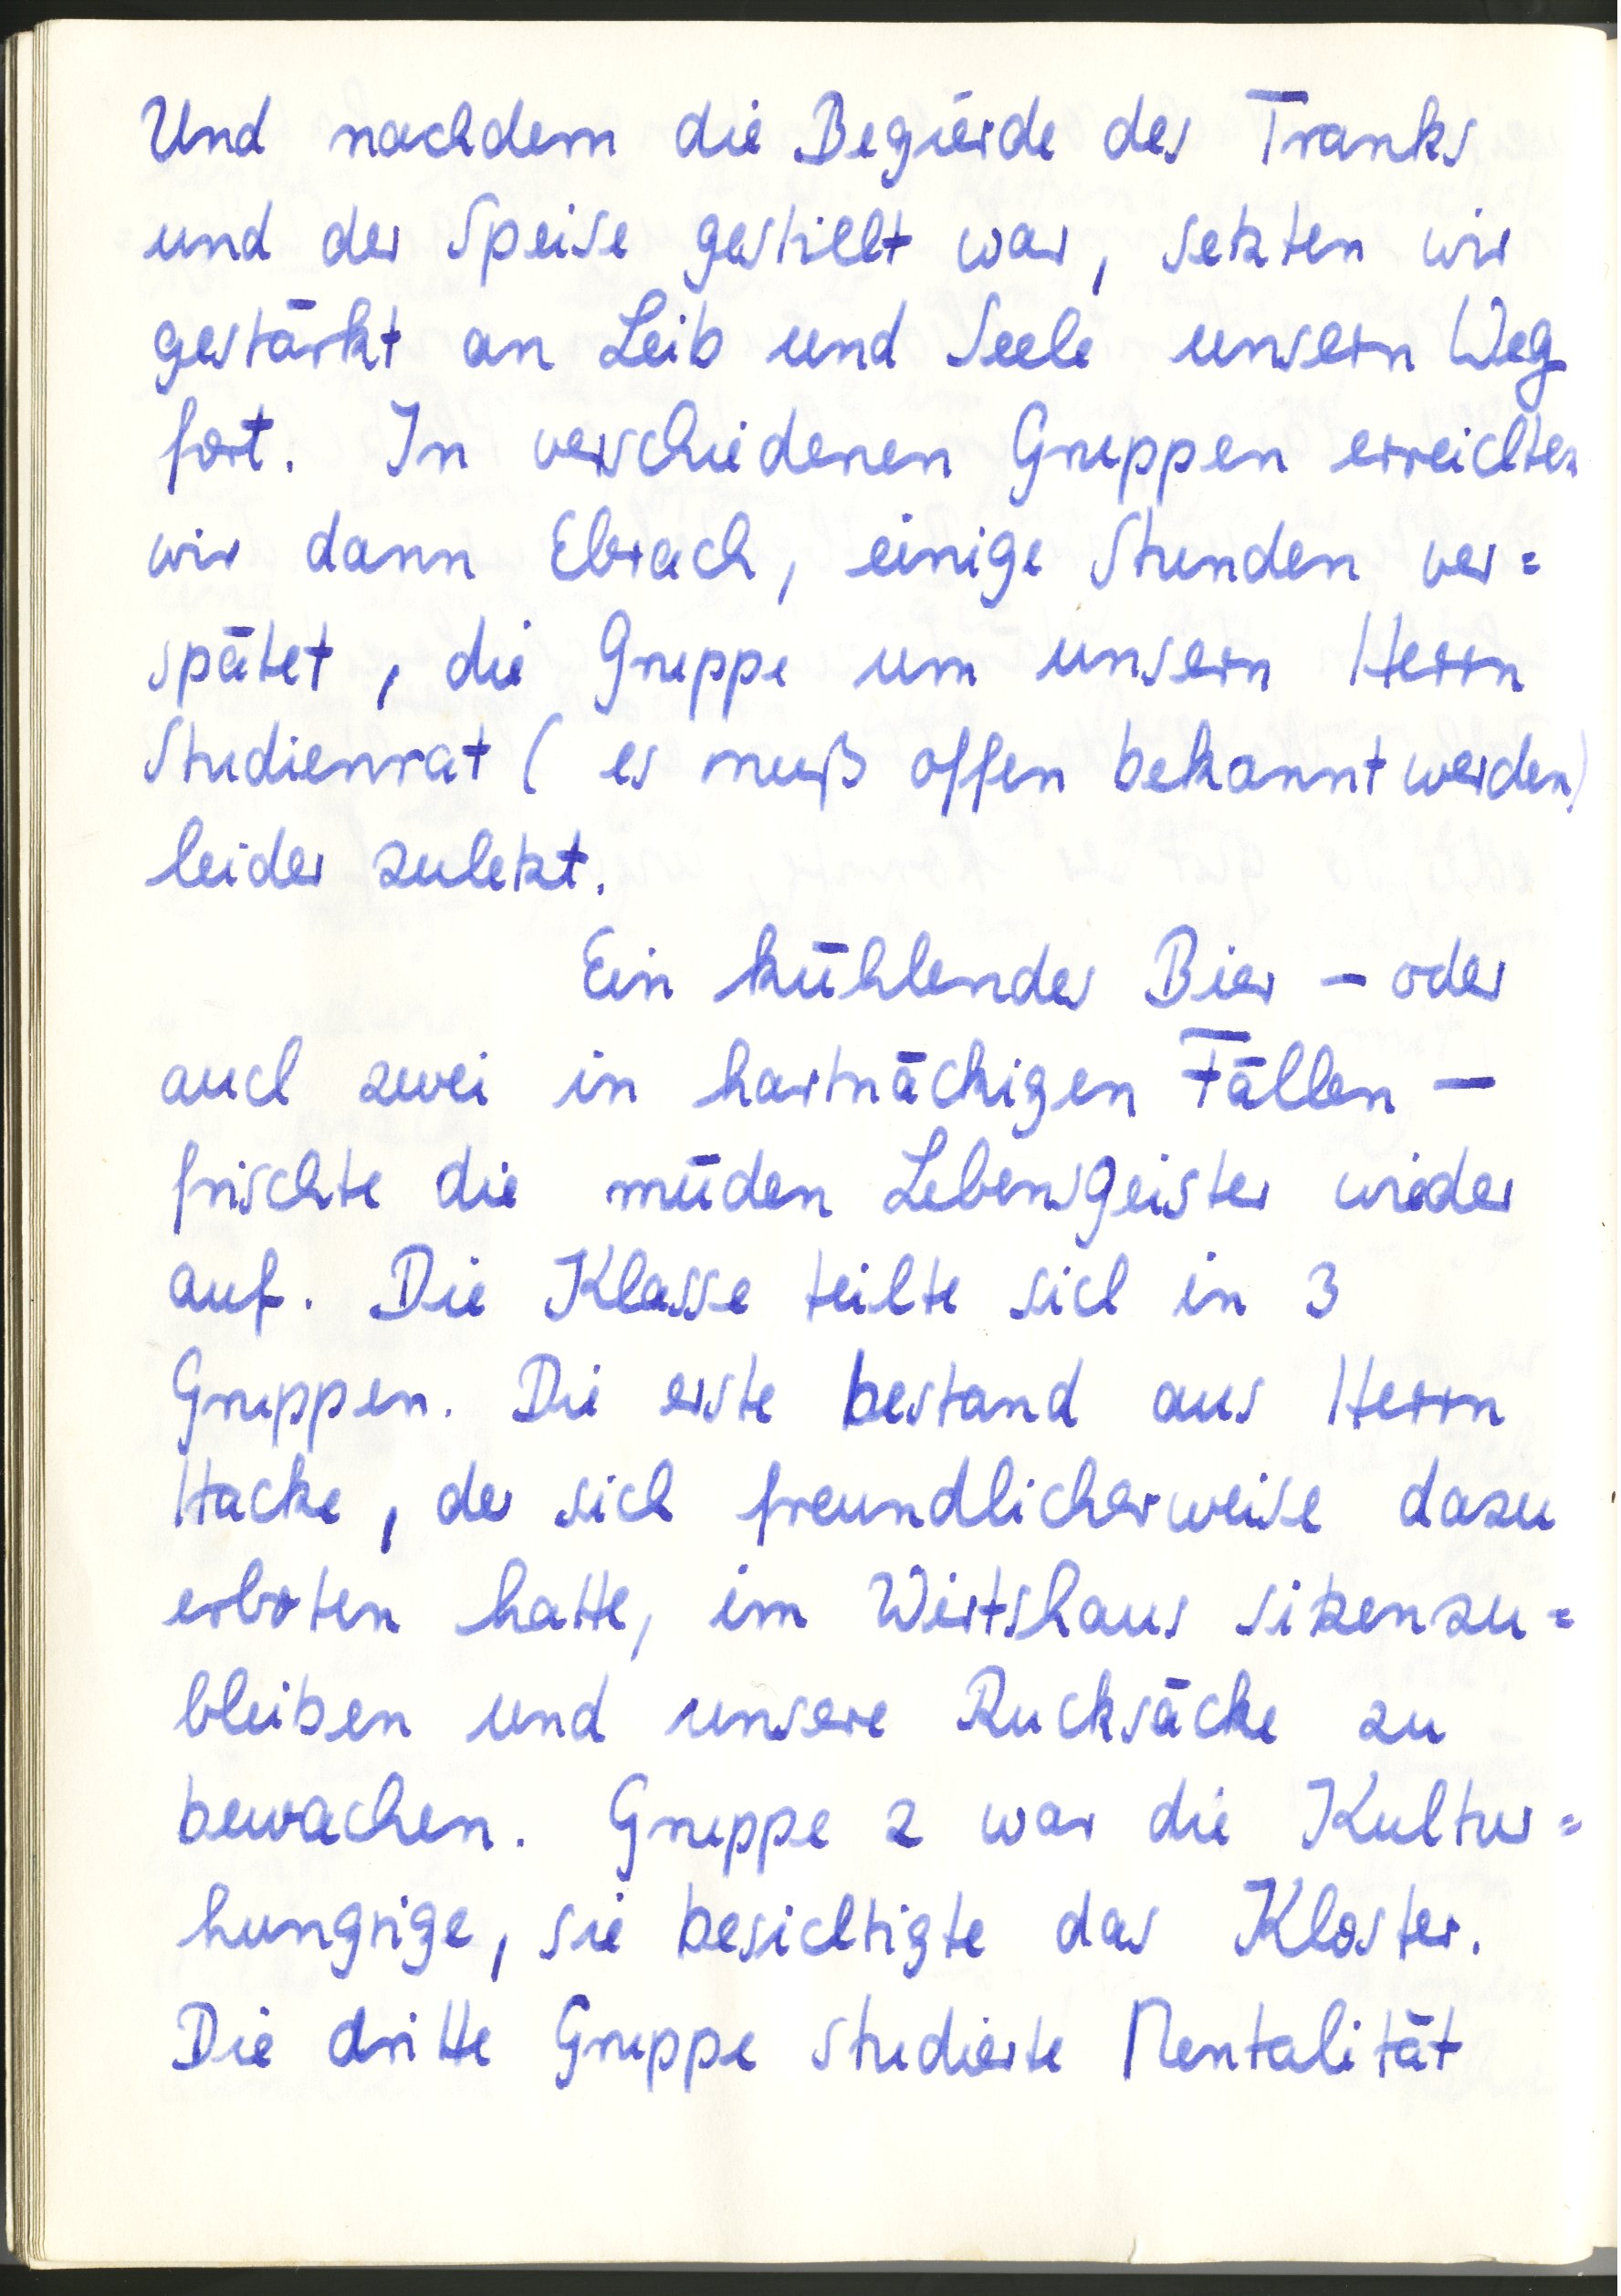 Und nachdem die Begierde des Tranks
und der Speise gestillt war, setzten wir
gestärkt an Leib und Seele unsern Weg
fort. In verschiedenen Gruppen erreichten
wir dann Ebrach, einige Stunden ver=
spätet, die Gruppe um unsern Herrn
Studienrat (es muß offen bekannt werden)
leider zuletzt.
Ein kühlendes Bier – oder
auch zwei in hartnäckigen Fällen –
frischte die müden Lebensgeister wieder
auf. Die Klasse teilte sich in 3
Gruppen. Die erste bestand aus Herrn
Hacke, der sich freundlicherweise dazu
erboten hatte, im Wirtshaus sitzenzu=
bleiben und unsere Rucksäcke zu
bewachen. Gruppe 2 war die Kultur=
hungrige, sie besichtigte das Kloster.
Die dritte Gruppe studierte Mentalität